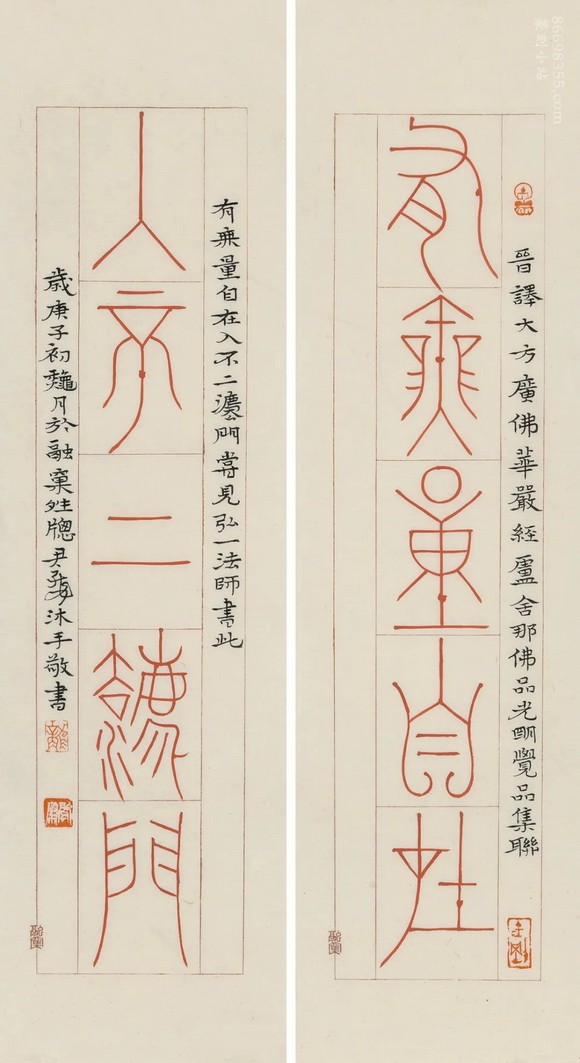 晉譯大方廣佛華嚴經盧舍那佛品光明覺品集聯
有無量自在
有無量自在入不二灋門嘗見弘一法師書此
入不二灋門
歲庚子初龝月於融窠牕尹沐手敬書
86698355.com